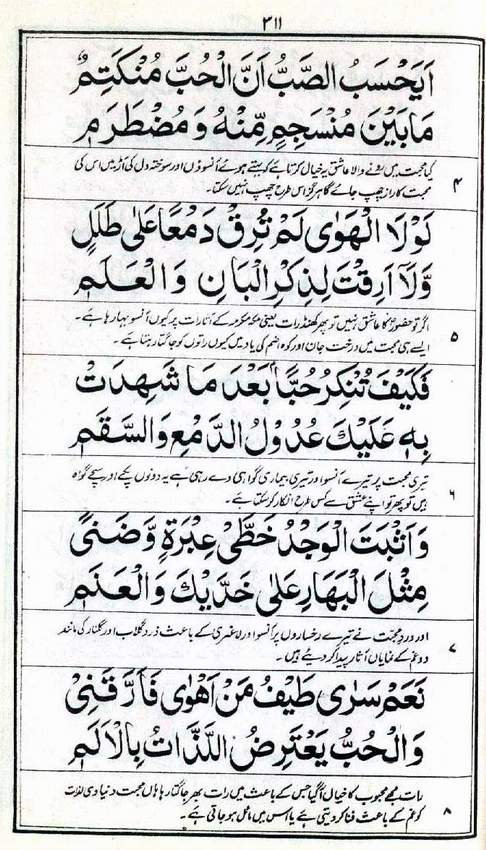 ۳۱۱
اَيَحْسَبُ الصَّبُّ اَنَّ الْحُبَّ مُنْكَتِمٌ
مَابَيْنَ مُنْسَجِمٍ مِّنْهُ وَمُضْطَرِمٖ
کیا محبت میں رونے والا عاشق یہ خیال کرتا ہے کہ بہتے ہوئے آنسوؤں اور سوختہ دل کی آڑ میں اس کی
۴ محبت کا راز چھپ جائے گا ہرگز اس طرح چھپ نہیں سکتا۔
لَوْلَا الْهَوٰى لَمْ تُرِقْ دَمْعًا عَلٰى طَلَلٍ
وَّلَا اَرِقْتَ لِذِكْرِ الْبَانِ وَالْعَلَمٖ
اگر تو حضور کا عاشق نہیں تو پھر کھنڈرات یعنی مکہ مکرمہ کے آثارات پر کیوں آنسو بہا رہا ہے۔
۵ ایسے ہی محبت میں درخت جان اور کوہ اضم کی یاد میں کیوں راتوں کو جاگتا رہتا ہے۔
فَكَيْفَ تُنْكِرُ حُبًّا بَعْدَ مَا شَهِدَتْ
بِهٖ عَلَيْكَ عُدُوْلُ الدَّمْعِ وَالسَّقَمٖ
تیری محبت پر تیرے آنسو اور تیری بیماری گواہی دے رہی ہے یہ دونوں پکے اور سچے گواہ
۶ ہیں تو پھر تو اپنے عشق سے کس طرح انکار کر سکتا ہے۔
وَاَثْبَتَ الْوَجْدُ خَطَّىْ عِبْرَةٍ وَّضَنًى
مِثْلَ الْبَهَارِ عَلٰى خَدَّيْكَ وَالْعَنَمٖ
اور درد محبت نے تیرے رخساروں پر آنسو اور لاغری کے باعث زرد گلاب اور گلنار کی مانند
۷ دو غم کے نمایاں آثار پیدا کر دیئے ہیں۔
نَعَمْ سَرٰى طَيْفُ مَنْ اَهْوٰى فَاَرَّقَنِىْ
وَالْحُبُّ يَعْتَرِضُ اللَّذَّاتِ بِالْاَلَمٖ
رات مجھے محبوب کا خیال آگیا جس کے باعث میں رات بھر جاگتا رہا ہاں محبت دنیاوی لذات
۸ کو غم کے باعث فنا کر دیتی ہے یا اس میں حائل ہو جاتی ہے۔